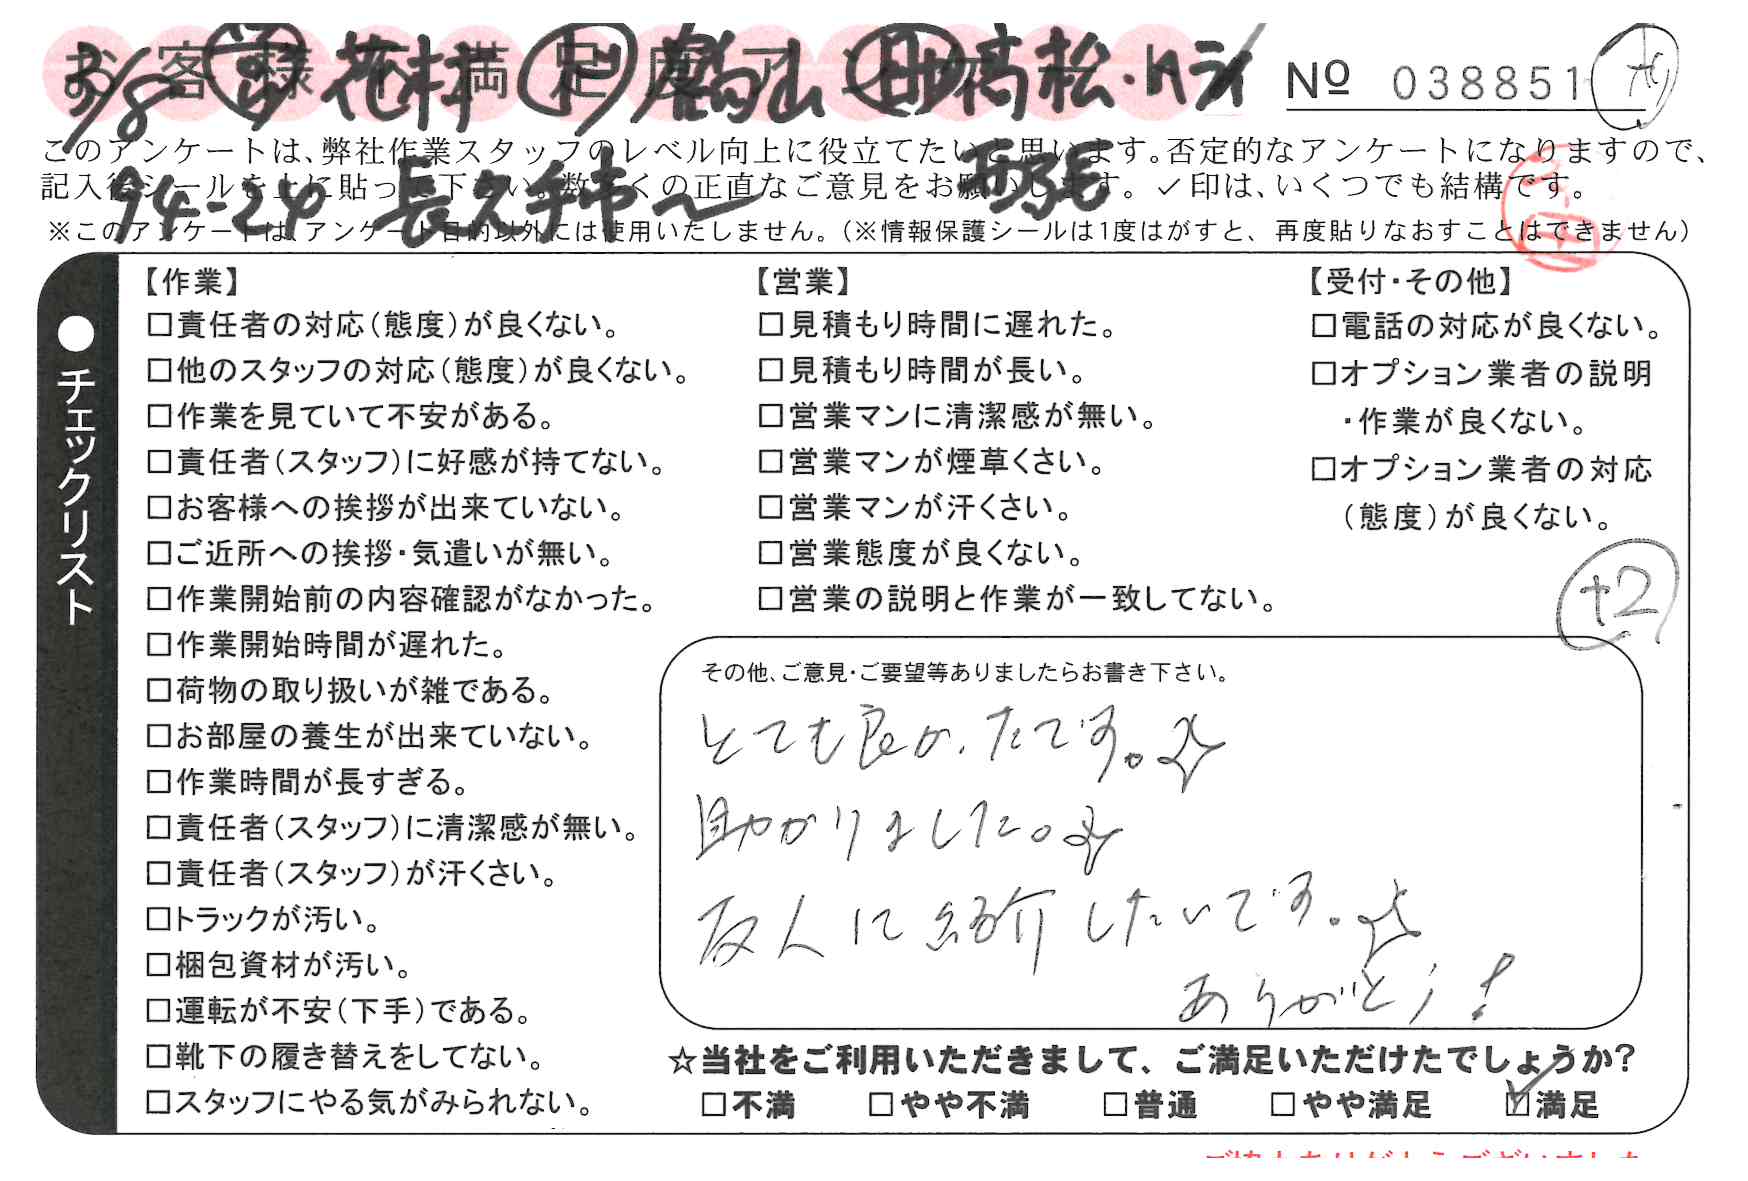 お客様不満足度アンケート
3/8 花村 高松・トライ
No 038851
このアンケートは、弊社作業スタッフのレベル向上に役立てたいと思います。否定的なアンケートになりますので、
記入後シールを上に貼って下さい。数多くの正直なご意見をお願いします。✓印は、いくつでも結構です。
94-24 長久手市〜
※このアンケートは、アンケート目的以外には使用いたしません。（※情報保護シールは1度はがすと、再度貼りなおすことはできません）
●チェックリスト
【作業】
□責任者の対応（態度）が良くない。
□他のスタッフの対応（態度）が良くない。
□作業を見ていて不安がある。
□責任者（スタッフ）に好感が持てない。
□お客様への挨拶が出来ていない。
□ご近所への挨拶・気遣いが無い。
□作業開始前の内容確認がなかった。
□作業開始時間が遅れた。
□荷物の取り扱いが雑である。
□お部屋の養生が出来ていない。
□作業時間が長すぎる。
□責任者（スタッフ）に清潔感が無い。
□責任者（スタッフ）が汗くさい。
□トラックが汚い。
□梱包資材が汚い。
□運転が不安（下手）である。
□靴下の履き替えをしてない。
□スタッフにやる気がみられない。
【営業】
□見積もり時間に遅れた。
□見積もり時間が長い。
□営業マンに清潔感が無い。
□営業マンが煙草くさい。
□営業マンが汗くさい。
□営業態度が良くない。
□営業の説明と作業が一致してない。
【受付・その他】
□電話の対応が良くない。
□オプション業者の説明
・作業が良くない。
□オプション業者の対応
（態度）が良くない。
+2
その他、ご意見・ご要望等ありましたらお書き下さい。
とても良かったです。
助かりました。
友人に紹介したいです。
ありがとう！
☆当社をご利用いただきまして、ご満足いただけたでしょうか？
□不満 □やや不満 □普通 □やや満足 ☑満足
ご協力ありがとうございました